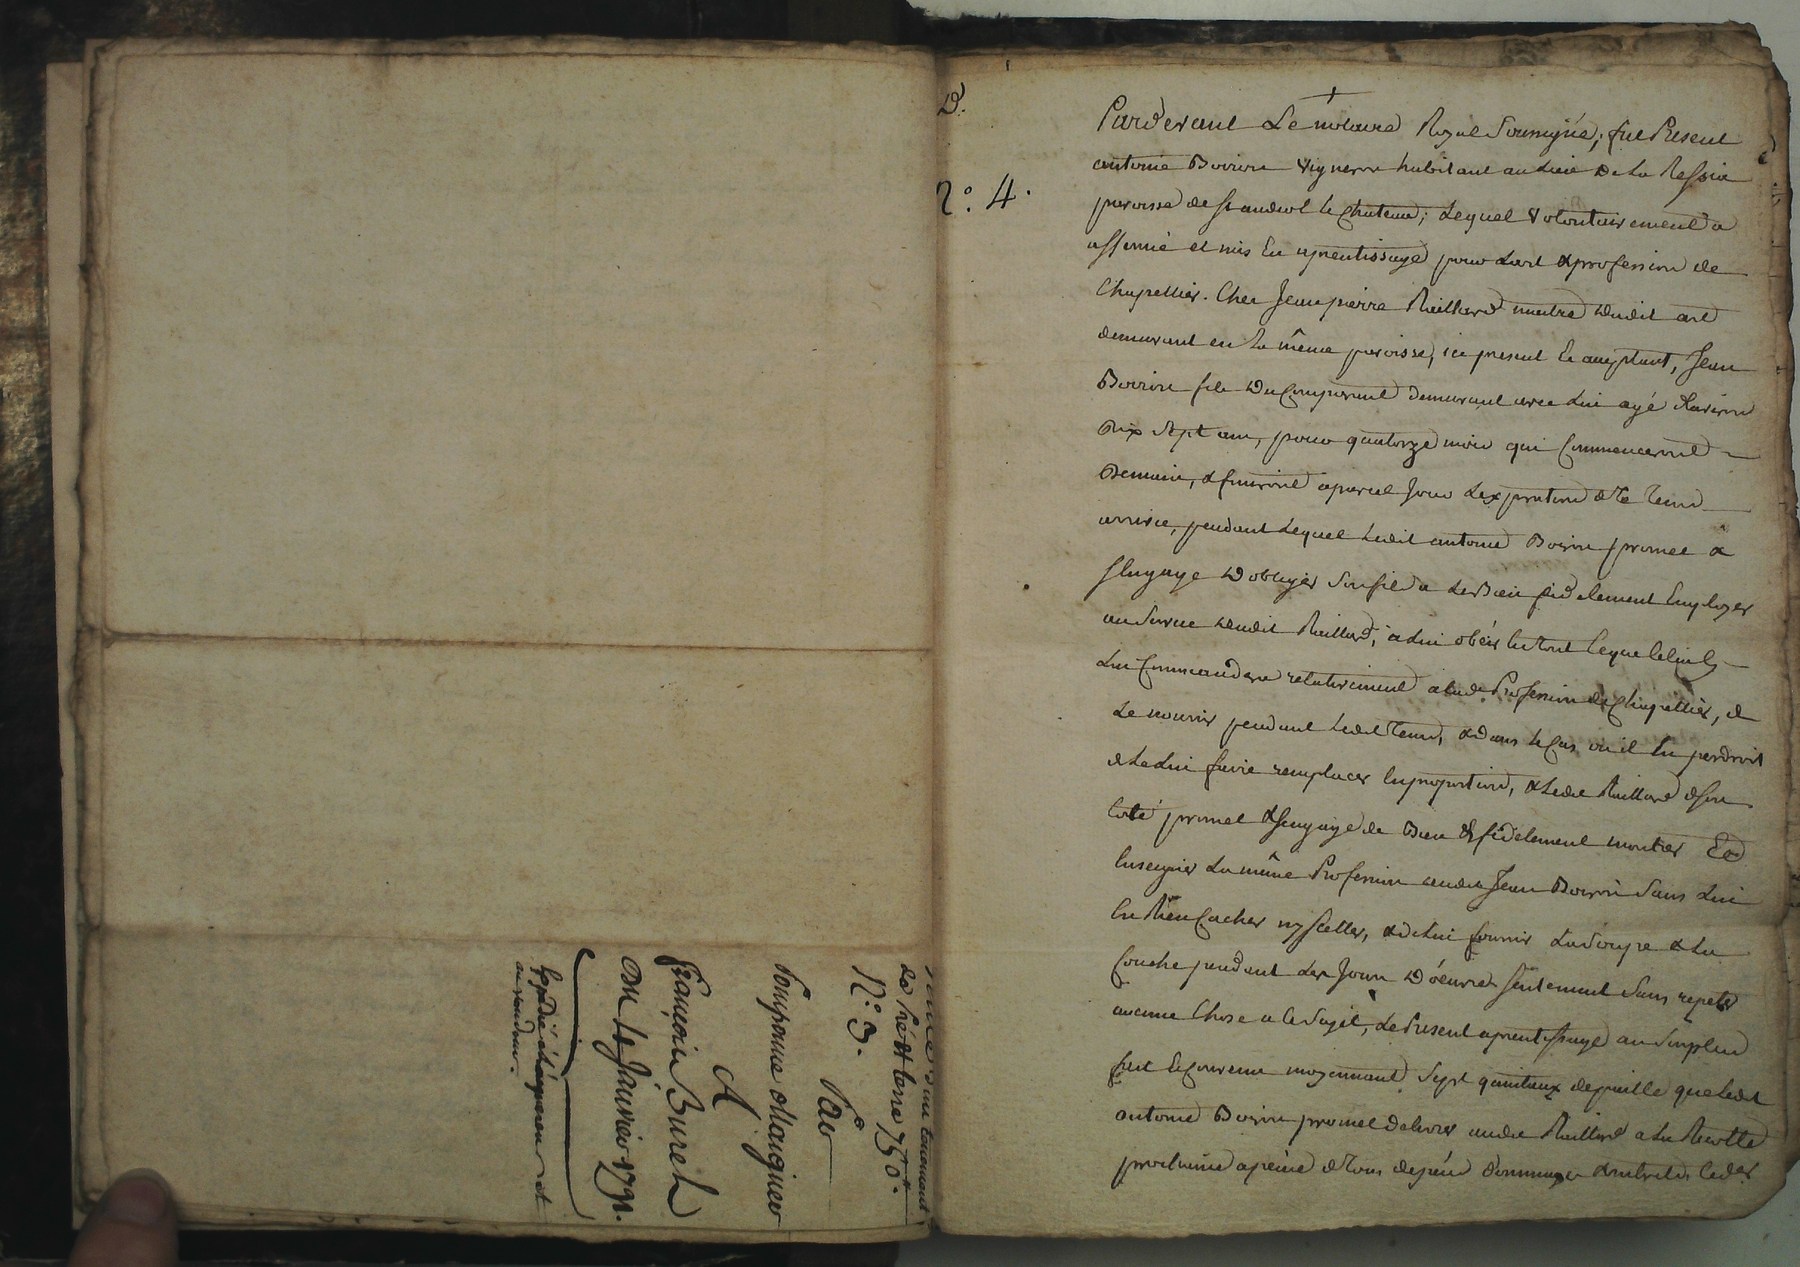 de Pré et terre 750.#
N.° 3.
Par
Pomponne Maigneu
A
François Burel
Du 4 Janvier 1791.
Expedié et
D.
N.° 4.
Pardevant Le notaire Royal Soussigné; fut Present
antoine Boiron Vigneron habitant au Lieu De La
paroisse de St andeol le Chateau; Lequel Volontairement a
affermé et mis En aprentissage pour Lart & profession de
Chapellier. Chez Jean pierre Raillard maitre Dudit art
demeurant en La même paroisse, ici present Et acceptant, Jean
Boiron fils Du Comparant Demeurant avec Lui agé d'environ
Dix Sept ans, pour quatorze mois qui Commenceront
Demain, & finiront apareil Jour Lexpiration de Ce Tems
arrivée, pendant Lequel Ledit antoine Boiron promet &
S'engage D'obliger Son fils a Bien fidelement Employer
au Service Dudit Raillard, a Lui obéir En Tout Ce que Celui Cy
Lui Commandera relativement a lade Profession de Chapellier, &
Le nourrir pendant Ledit Tems, & dans le Cas où il En perdroit
de Le Lui faire remplacer En proportion, & Ledit Raillard de son
Coté promet & s'engage de Bien & fidelement montrer Et
Enseigner La même Profession audit Jean Boiron Sans Lui
En Rien Cacher ny Celler, & de Lui fournir La Soupe & La
Couche pendant Les Jours D'oeuvre Seulement Sans repeter
aucune Chose a Ce Sujet, Le Present aprentissage au Surplus
fait Et Convenu moyennant Sept quintaux de paille que Ledit
antoine Boiron promet delivrer audit Raillard a La Recolte
prochaine a peine de Tous depens Dommages & interets,